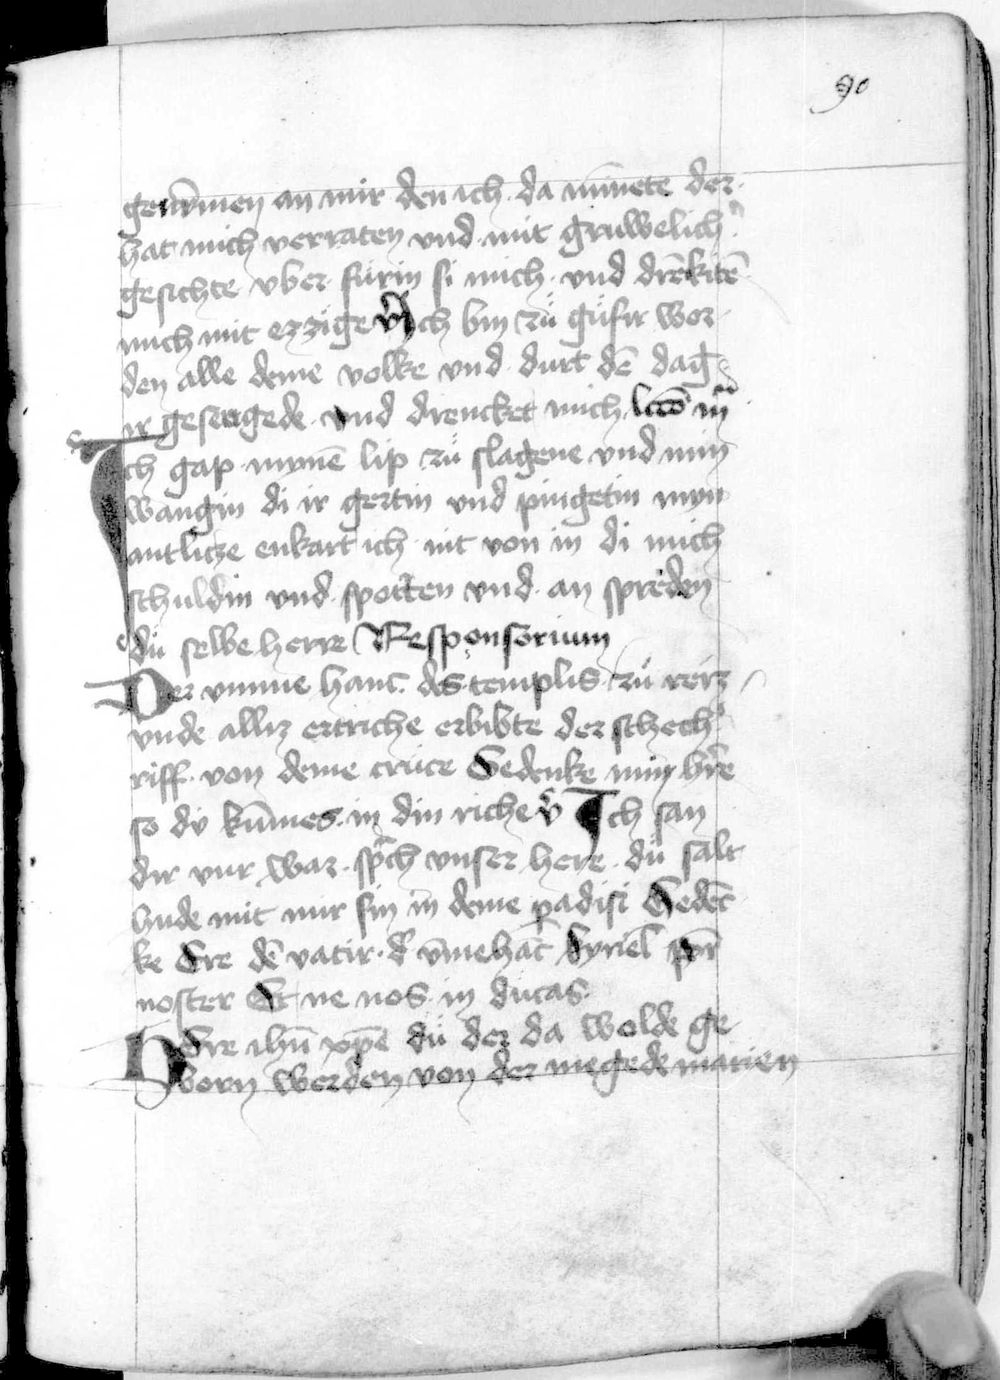 90
genūmen an mir den ich da minnete der
hat mich verraten vnd mit gruwelich
gesichte vber furin si mich vnd drēkitē
mich mit ezzige v̄ Ich bin zů gůfir wor
den alle deme volke vnd durt dē dag
ir gesengede vnd drencket mich lcco
Ich gap mynē lip zů slagene vnd min
wangin di ir gertin vnd pingetin myn
antlicze enkart ich nit von in di mich
schuldin vnd spotten vnd an spreden
dů selbe herre Responsorium
Der vmme hanc des templis zů reiz
vnde alliz ertriche erbibte der schech
riff von deme crůce Gedenke min hr̄e
so dv kūmes in din riche v̄ Ich san
dir vur war sp̄ch vnser here dů salt
hude mit mir sin in deme p̱adisi Gedēc
ke Ere dē vatir d' vmehāc kyriel pr̄
noster Et ne nos in ducas
Here ihū xp̄e dů der da wolde ge
born werden von der megede marien